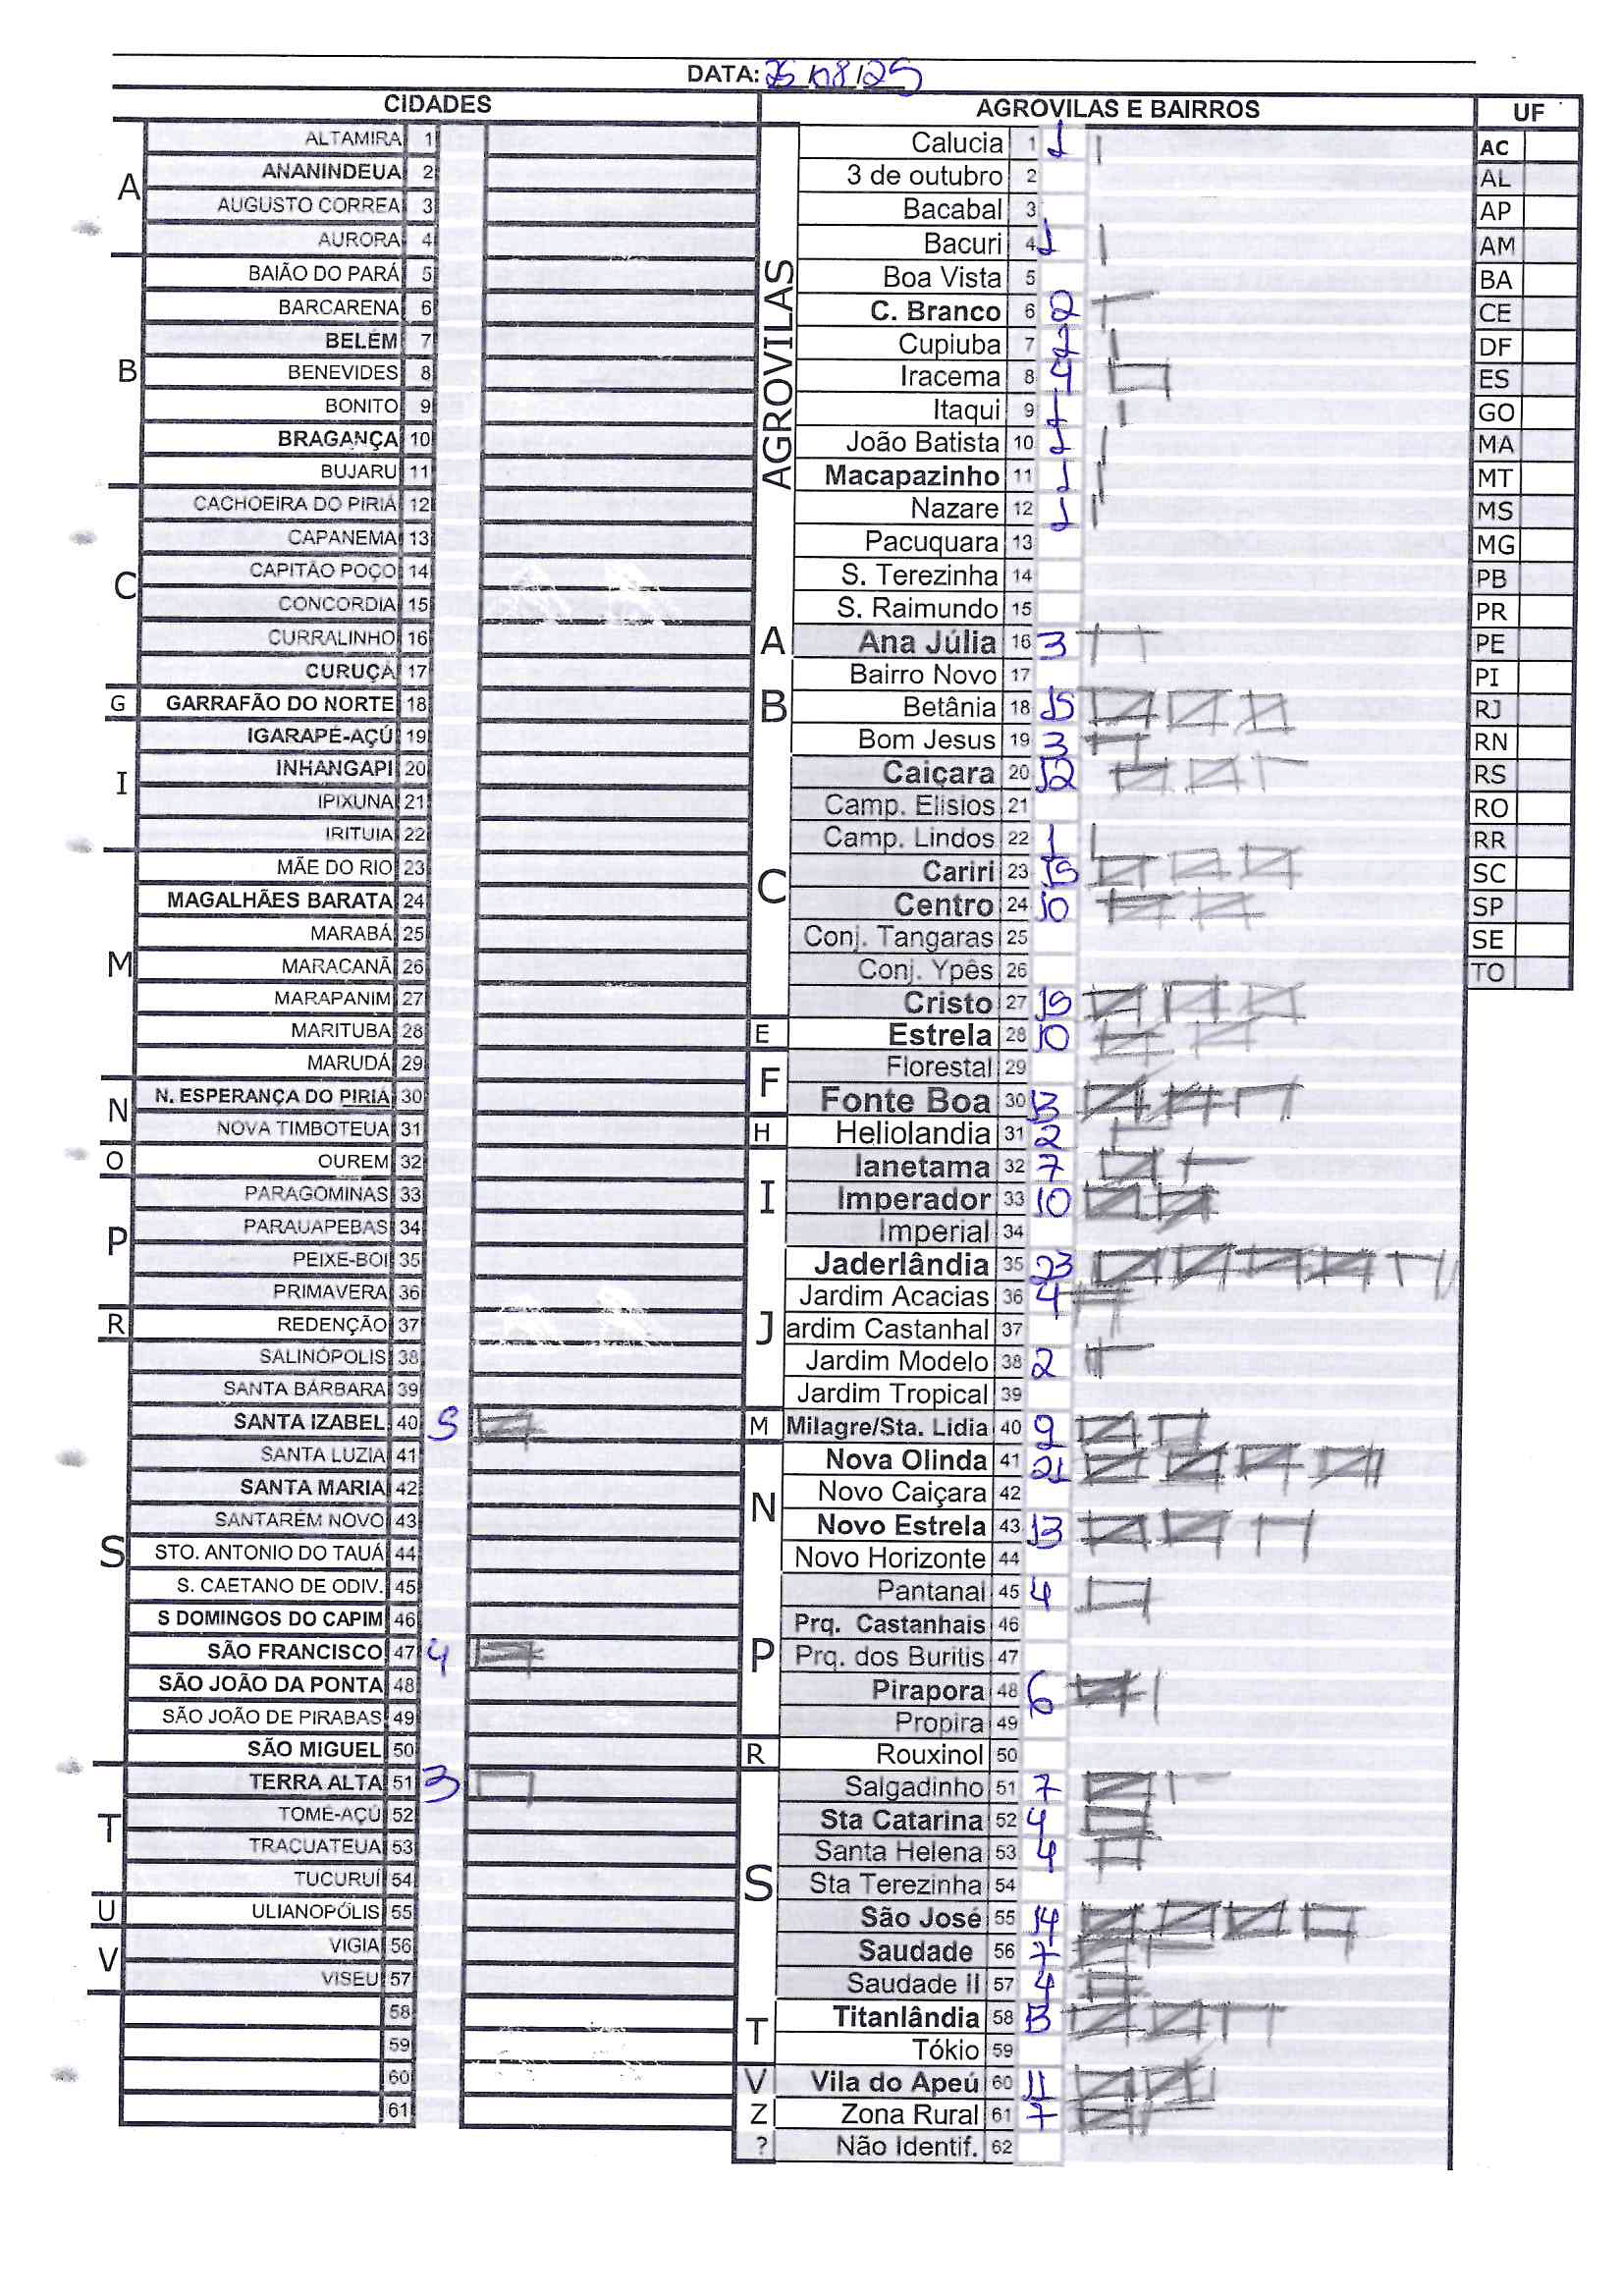 DATA: 25/08/25
CIDADES
A
ALTAMIRA 1
ANANINDEUA 2
AUGUSTO CORREA 3
AURORA 4
B
BAIÃO DO PARÁ 5
BARCARENA 6
BELÉM 7
BENEVIDES 8
BONITO 9
BRAGANÇA 10
BUJARU 11
C
CACHOEIRA DO PIRIÁ 12
CAPANEMA 13
CAPITÃO POÇO 14
CONCORDIA 15
CURRALINHO 16
CURUÇA 17
G
GARRAFÃO DO NORTE 18
I
IGARAPÉ-AÇÚ 19
INHANGAPI 20
IPIXUNA 21
IRITUIA 22
M
MÃE DO RIO 23
MAGALHÃES BARATA 24
MARABÁ 25
MARACANÃ 26
MARAPANIM 27
MARITUBA 28
MARUDÁ 29
N
N. ESPERANÇA DO PIRIÁ 30
NOVA TIMBOTEUA 31
O
OUREM 32
P
PARAGOMINAS 33
PARAUAPEBAS 34
PEIXE-BOI 35
PRIMAVERA 36
R
REDENÇÃO 37
S
SALINÓPOLIS 38
SANTA BÁRBARA 39
SANTA IZABEL 40 5
SANTA LUZIA 41
SANTA MARIA 42
SANTARÉM NOVO 43
STO. ANTONIO DO TAUÁ 44
S. CAETANO DE ODIV. 45
S DOMINGOS DO CAPIM 46
SÃO FRANCISCO 47 4
SÃO JOÃO DA PONTA 48
SÃO JOÃO DE PIRABAS 49
SÃO MIGUEL 50
T
TERRA ALTA 51 3
TOMÉ-AÇÚ 52
TRACUATEUA 53
TUCURUÍ 54
U
ULIANOPÓLIS 55
V
VIGIA 56
VISEU 57
58
59
60
61
AGROVILAS E BAIRROS
AGROVILAS
Calucia 1 1
3 de outubro 2
Bacabal 3
Bacuri 4 1
Boa Vista 5
C. Branco 6 2
Cupiuba 7
Iracema 8 4
Itaqui 9 1
João Batista 10 1
Macapazinho 11 1
Nazare 12 1
Pacuquara 13
S. Terezinha 14
S. Raimundo 15
A
Ana Júlia 16 3
B
Bairro Novo 17
Betânia 18 15
Bom Jesus 19 3
C
Caiçara 20 12
Camp. Elisios 21
Camp. Lindos 22 1
Cariri 23 15
Centro 24 10
Conj. Tangaras 25
Conj. Ypês 26
Cristo 27 15
E
Estrela 28 10
F
Florestal 29
Fonte Boa 30 13
H
Heliolandia 31 2
I
Ianetama 32 7
Imperador 33 10
Imperial 34
J
Jaderlândia 35 23
Jardim Acacias 36 4
ardim Castanhal 37
Jardim Modelo 38 2
Jardim Tropical 39
M
Milagre/Sta. Lidia 40 9
N
Nova Olinda 41 21
Novo Caiçara 42
Novo Estrela 43 13
Novo Horizonte 44
P
Pantanal 45 4
Prq. Castanhais 46
Prq. dos Buritis 47
Pirapora 48 6
Propira 49
R
Rouxinol 50
S
Salgadinho 51 7
Sta Catarina 52 4
Santa Helena 53 4
Sta Terezinha 54
São José 55 14
Saudade 56 7
Saudade II 57 4
T
Titanlândia 58 13
Tókio 59
V
Vila do Apeú 60 11
Z
Zona Rural 61 7
?
Não Identif. 62
UF
AC
AL
AP
AM
BA
CE
DF
ES
GO
MA
MT
MS
MG
PB
PR
PE
PI
RJ
RN
RS
RO
RR
SC
SP
SE
TO